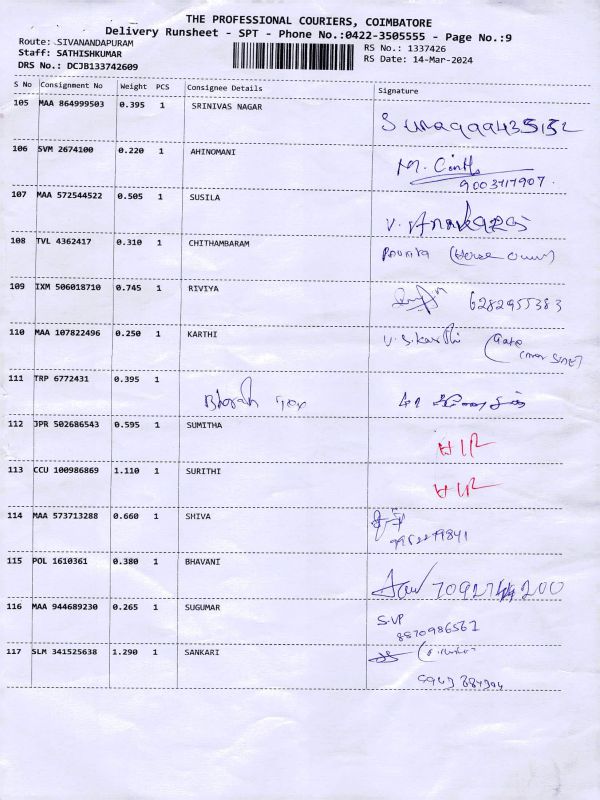 THE PROFESSIONAL COURIERS, COIMBATORE
Delivery Runsheet - SPT - Phone No.:0422-3505555 - Page No.:9
Route: SIVANANDAPURAM
RS No.: 1337426
Staff: SATHISHKUMAR
RS Date: 14-Mar-2024
DRS No.: DCJB133742609
S No Consignment No Weight PCS Consignee Details Signature
105 MAA 864999503 0.395 1 SRINIVAS NAGAR
106 SVM 2674100 0.220 1 AHINOMANI
9003717907.
107 MAA 572544522 0.505 1 SUSILA
108 TVL 4362417 0.310 1 CHITHAMBARAM
109 IXM 506018710 0.745 1 RIVIYA 6282955383
110 MAA 107822496 0.250 1 KARTHI V.S.Karthi
111 TRP 6772431 0.395 1
112 JPR 502686543 0.595 1 SUMITHA
113 CCU 100986869 1.110 1 SURITHI
114 MAA 573713288 0.660 1 SHIVA
115 POL 1610361 0.380 1 BHAVANI
116 MAA 944689230 0.265 1 SUGUMAR S.VP
8870986562
117 SLM 341525638 1.290 1 SANKARI